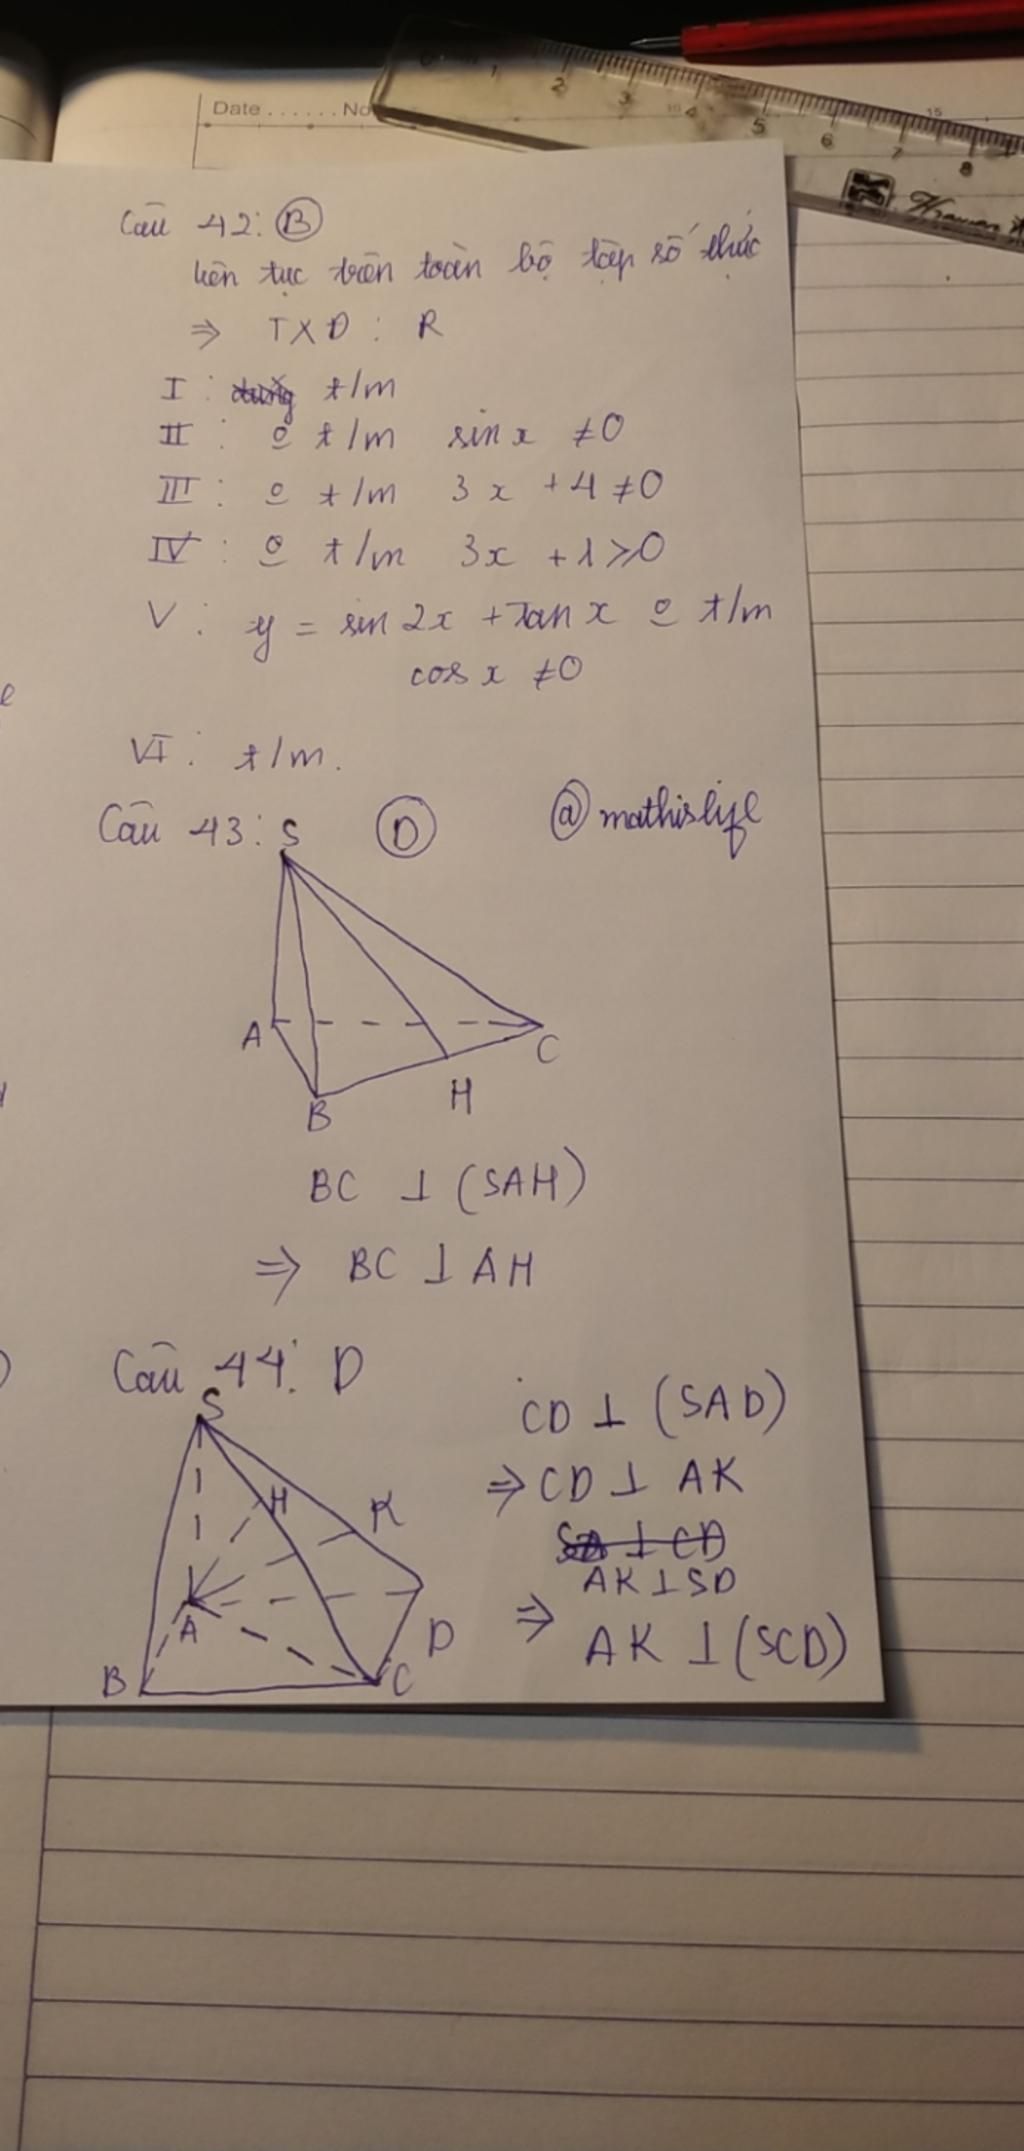 Date ...... No
0 1 2 3 4 5 6 7 8
15
Câu 42: B
liên tục trên toàn bộ tập số thức
⇒ TXD : R
I : t/m
II : o t/m sin x ≠0
III : o t/m 3x +4 ≠0
IV : o t/m 3x +1 ≥0
V : y = sin 2x + Tan x o t/m
cos x ≠0
VI : t/m.
Câu 43: D @mathislife
S
A
C
H
B
BC ⊥ (SAH)
⇒ BC ⊥ AH
Câu 44: D
S
H
K
A
D
B
C
CD ⊥ (SAD)
⇒ CD ⊥ AK
SA ⊥ CD
AK ⊥ SD
⇒ AK ⊥ (SCD)